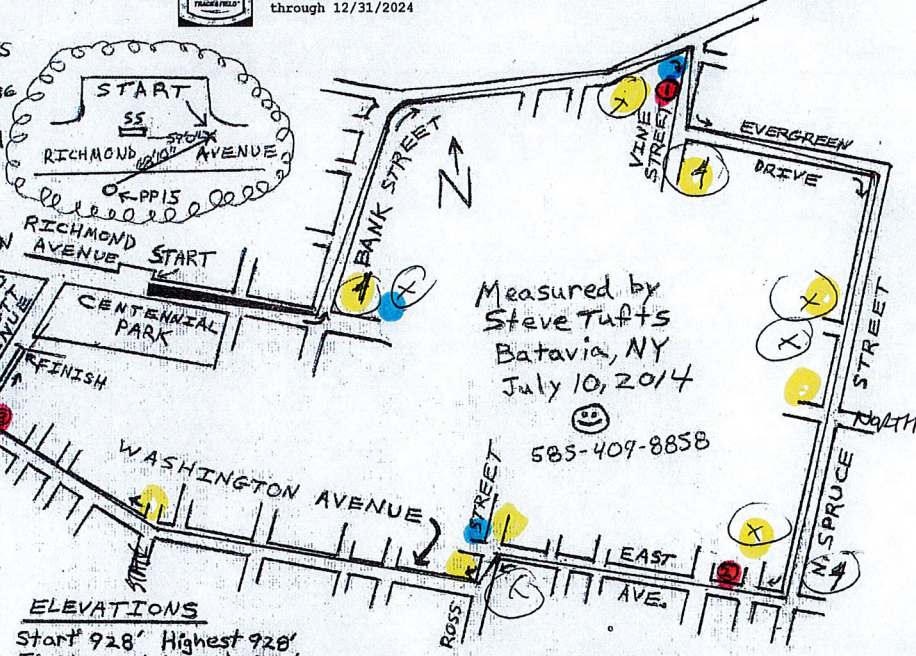 TRACK & FIELD
through 12/31/2024
START
SS
RICHMOND AVENUE
PP15
RICHMOND
AVENUE
START
CENTENNIAL
PARK
FINISH
BANK STREET
N
VINE
STREET
EVERGREEN
DRIVE
4
4
X
X
X
X
X
Measured by
Steve Tufts
Batavia, NY
July 10, 2014
585-409-8858
STREET
NORTH
N. SPRUCE
4
WASHINGTON AVENUE
STREET
EAST
AVE.
STATE
ROSS
ELEVATIONS
Start 928' Highest 928'